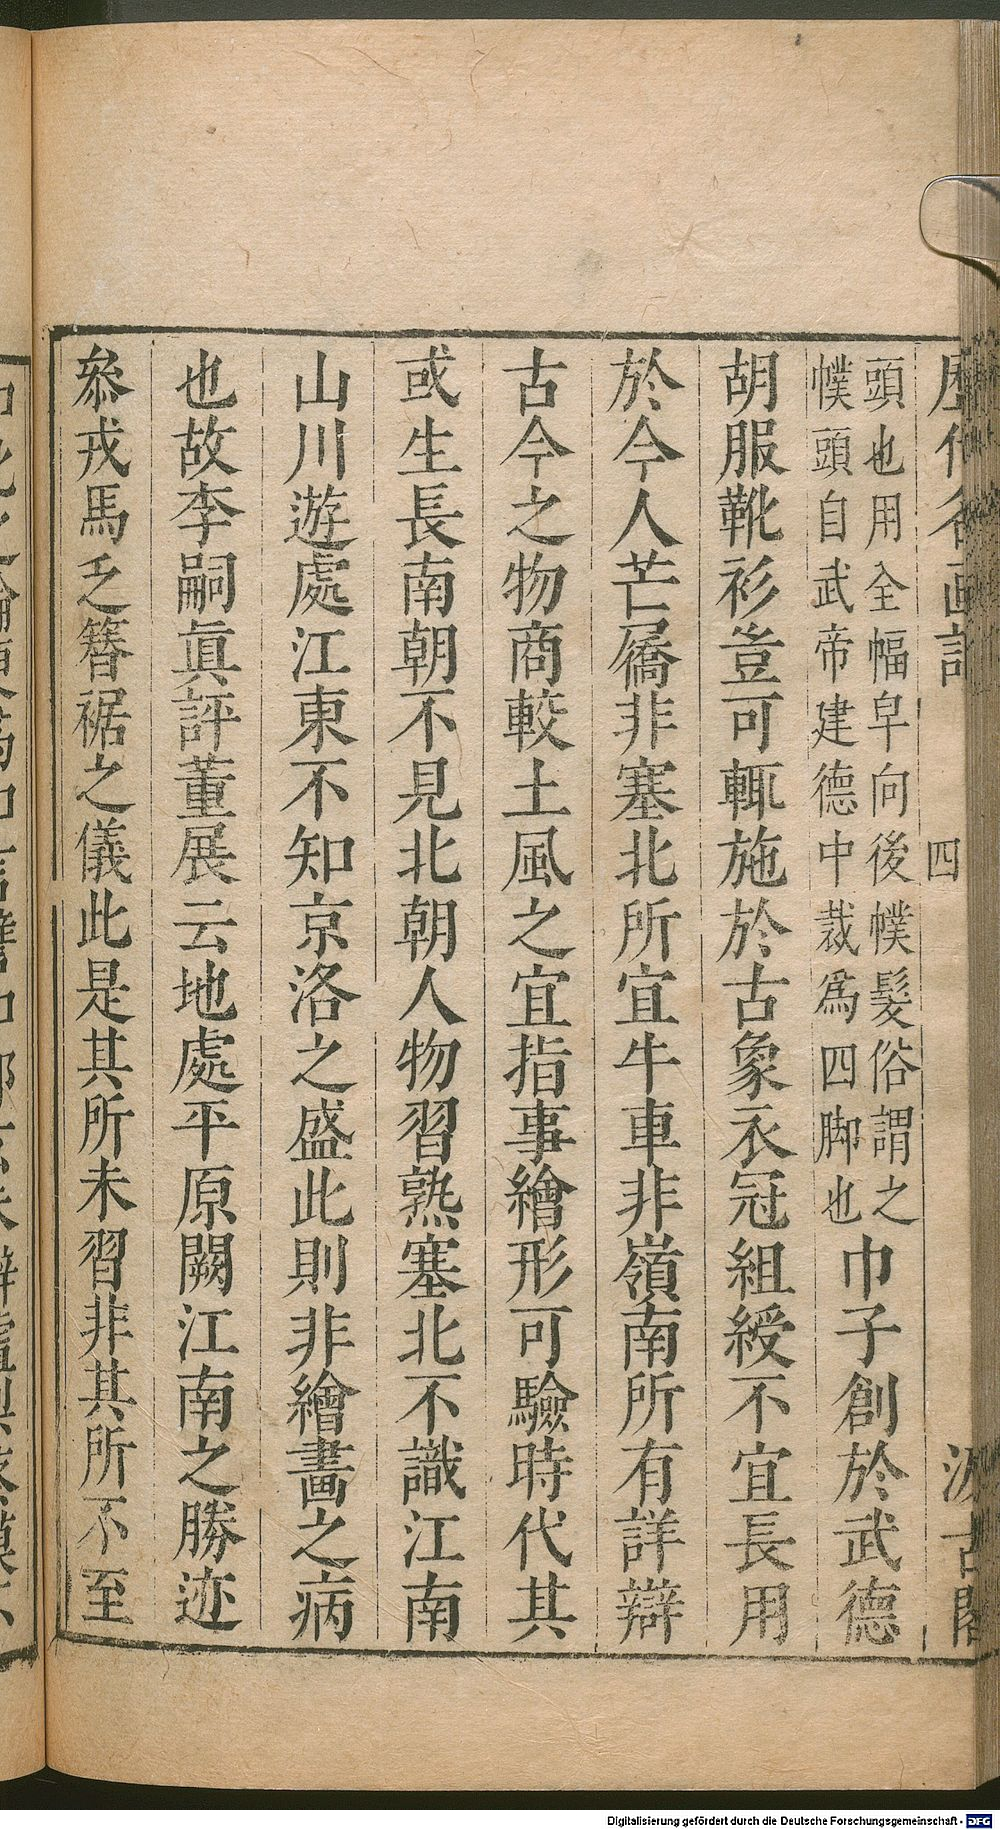 頭也用全幅皁向後幞髮俗謂之
幞頭自武帝建德中裁爲四脚也
巾子創於武德
胡服靴衫豈可輒施於古象衣冠組綬不宜長用
於今人芒屩非塞北所宜牛車非嶺南所有詳辯
古今之物商較土風之宜指事繪形可驗時代其
或生長南朝不見北朝人物習熟塞北不識江南
山川遊處江東不知京洛之盛此則非繪畵之病
也故李嗣眞評董展云地處平原闕江南之勝迹
叅戎馬乏簪裾之儀此是其所未習非其所不至
四
Digitalisierung gefördert durch die Deutsche Forschungsgemeinschaft - DFG